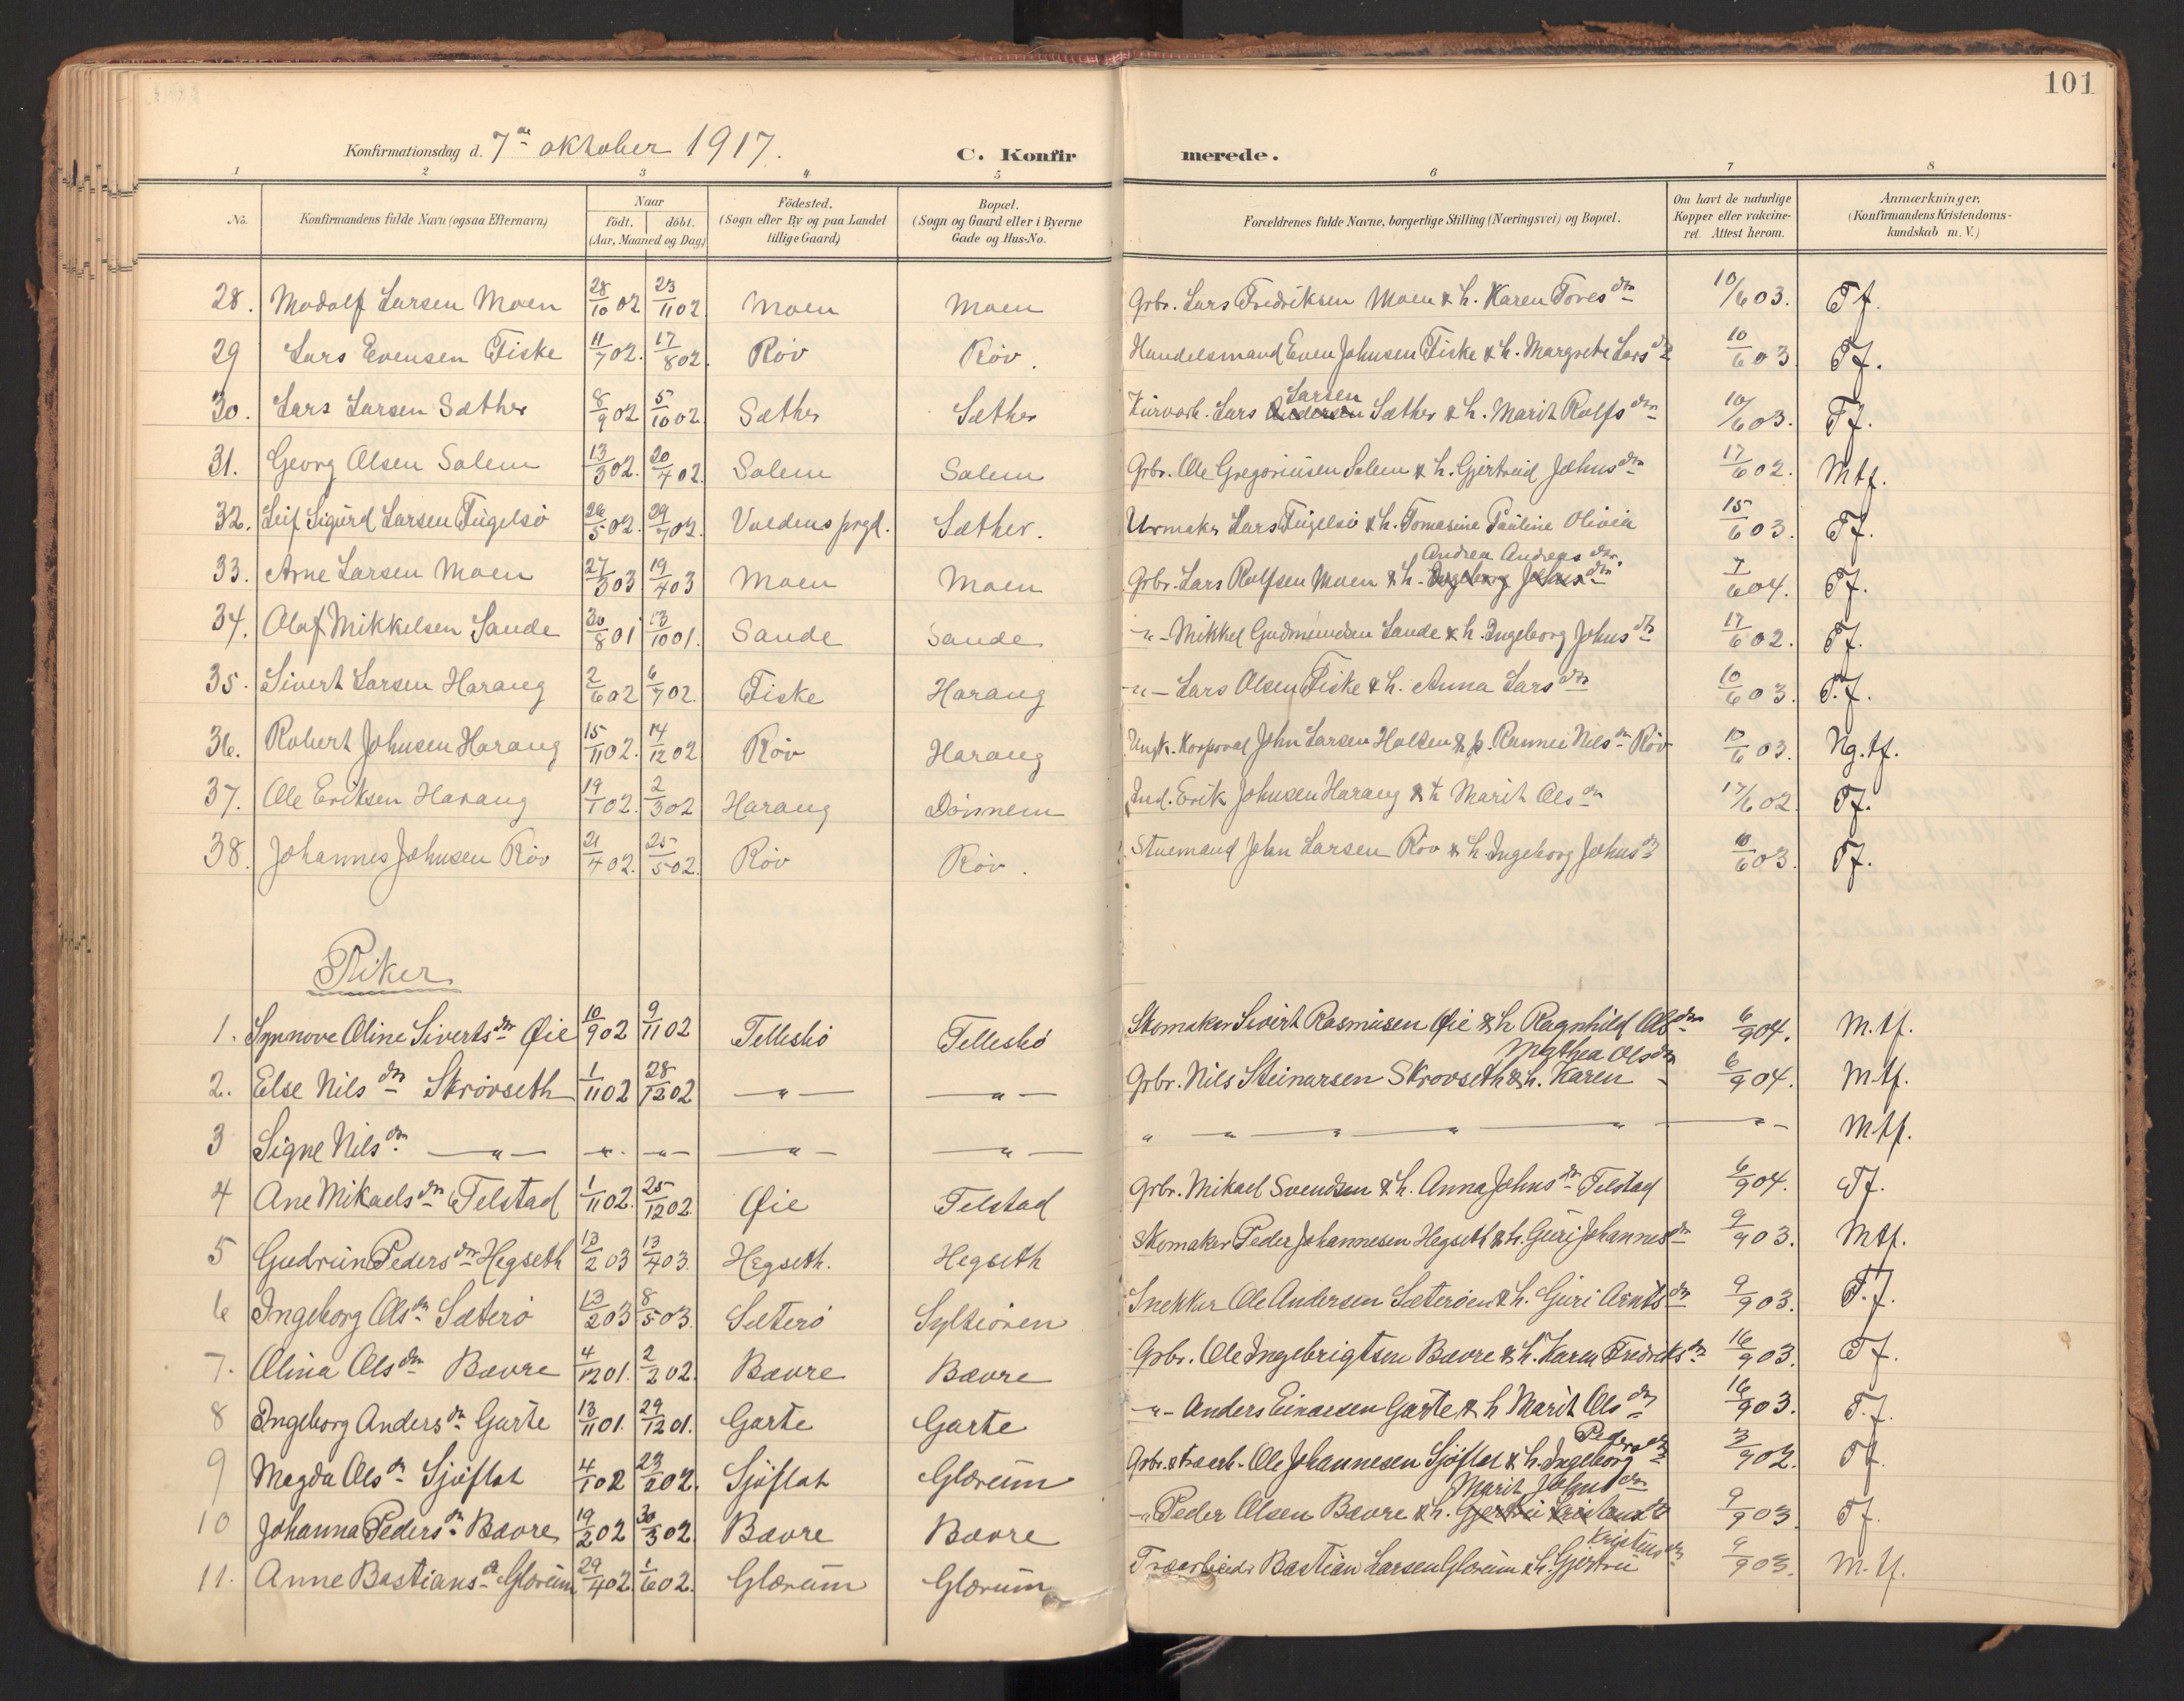 101
Konfirmationsdag d. 7de oktober 1917. C. Konfirmerede.
1 2 3 4 5 6 7 8
No. Konfirmandens fulde Navn (ogsaa Efternavn) Naar født. døbt. (Aar, Maaned og Dag) Födested. (Sogn efter By og paa Landet tillige Gaard) Bopæl. (Sogn og Gaard eller i Byerne Gade og Hus-No. Forældrenes fulde Navne, borgerlige Stilling (Næringsvei) og Bopæl. Om havt de naturlige Kopper eller vakcineret. Attest herom. Anmærkninger. (Konfirmandens Kristendomskundskab m. V.)
28. Modolf Larsen Moen 28/10 02 23/11 02 Moen Moen Grbr. Lars Fredriksen Moen & h. Karen Toresdtr 10/6 03. Tf.
29 Lars Evensen Fiske 11/7 02. 17/8 02. Röv Röv. Handelsmand Even Johnsen Fiske & h. Margrete Larsdtr 10/6 03 Tf.
30. Lars Larsen Sæther 8/9 02 5/10 02. Sæther Sæther Lars Larsen Sæther & h. Marit Rolfsdtr 10/6 03. Tf.
31. Georg Olsen Solem 13/3 02. 20/4 02. Solem Solem Grbr. Ole Gregoriusen Solem & h. Gjertrud Johnsdtr 17/6 02. Mtf.
32. Leif Sigurd Larsen Fugelsö 26/5 02. 29/7 02. Voldens prgd. Sæther. Urmaker Lars Fugelsö & h. Tomasine Pauline Olivia 15/6 03. Tf.
33. Arne Larsen Moen 27/3 03 19/4 03 Moen Moen Grbr. Lars Rolfsen Moen & h. Andrea Andreasdtr. 7/6 04. Tf.
34. Olaf Mikkelsen Sande 30/8 01 13/10 01. Sande Sande -"- Mikkel Gudmundsen Sande & h. Ingeborg Johnsdtr 17/6 02. Tf.
35. Sivert Larsen Harang 2/6 02 6/7 02. Fiske Harang -"- Lars Olsen Fiske & h. Anna Larsdtr 10/6 03. T.f.
36. Robert Johnsen Harang 15/11 02. 14/12 02 Röv Harang Ungk. Korporal John Larsen Halsen & p. Rannei Nilsdtr Röv 10/6 03. Ng.tf.
37. Ole Eriksen Harang 19/1 02. 2/3 02 Harang Dönnem Ind. Erik Johnsen Harang & h. Marit Olsdtr 17/6 02. Tf.
38. Johannes Johnsen Röv 21/4 02. 25/5 02. Röv Röv. Stuemand John Larsen Röv & h. Ingeborg Johnsdtr 10/6 03. Tf.
Piker
1. Synnove Oline Sivertsdtr Øie 10/9 02 9/11 02 Tellesbö Tellesbö Skomaker Sivert Rasmusen Øie & h Ragnhild Olsdtr 6/9 04. M.tf.
2. Else Nilsdtr Skrövseth 1/11 02 28/12 02 -"- -"- Grbr. Nils Steinarsen Skrovseth & h. Karen Mathea Olsdtr 6/9 04. Mtf.
3 Signe Nilsdtr. -"- -"- -"- -"- -"- " - " - " - " - " - Mtf.
4 Ane Mikaelsdtr Telstad 1/11 02. 25/12 02. Øie Telstad Grbr. Mikael Svendsen & h. Anna Johnsdtr Telstad 6/9 04. Tf.
5 Gudrun Pedersdtr Hegseth 13/2 03 13/4 03. Hegseth. Hegseth Skomaker Peder Johannesen Hegseth & h. Guri Johannesdtr 9/9 03. Mtf.
6 Ingeborg Olsdtr Sæterö 13/2 03 8/5 03. Sæterö Syltiören Snekker Ole Andersen Sæteröen & h. Guri Arntsdtr 9/9 03. T.f.
7. Olina Olsdtr Bævre 4/12 01. 2/2 02. Bævre Bævre Grbr. Ole Ingebrigtsen Bævre & h. Karen Fredriksdtr 16/9 03. Tf.
8 Ingeborg Andersdtr Garte 13/11 01. 29/12 01. Garte Garte -"- Anders Einarsen Garte & h Marit Olsdtr 16/9 03. T.f.
9 Magda Olsdtr Sjöflot 4/1 02 23/2 02. Sjöflat Glærum Grbr. & træarb. Ole Johannesen Sjöflot & h. Ingeborg Pedersdtr 3/9 02. Tf.
10 Johanna Pedersdtr Bævre 19/2 02 30/3 02. Bævre Bævre -"- Peder Olsen Bævre & h. Marit Johnsdtr 9/9 03. Tf.
11. Anne Bastiansdtr Glærum 29/4 02. 1/6 02. Glærum Glærum Træarbeider Bastian Larsen Glærum & h. Gjertru Kristensdtr 9/9 03. M.tf.